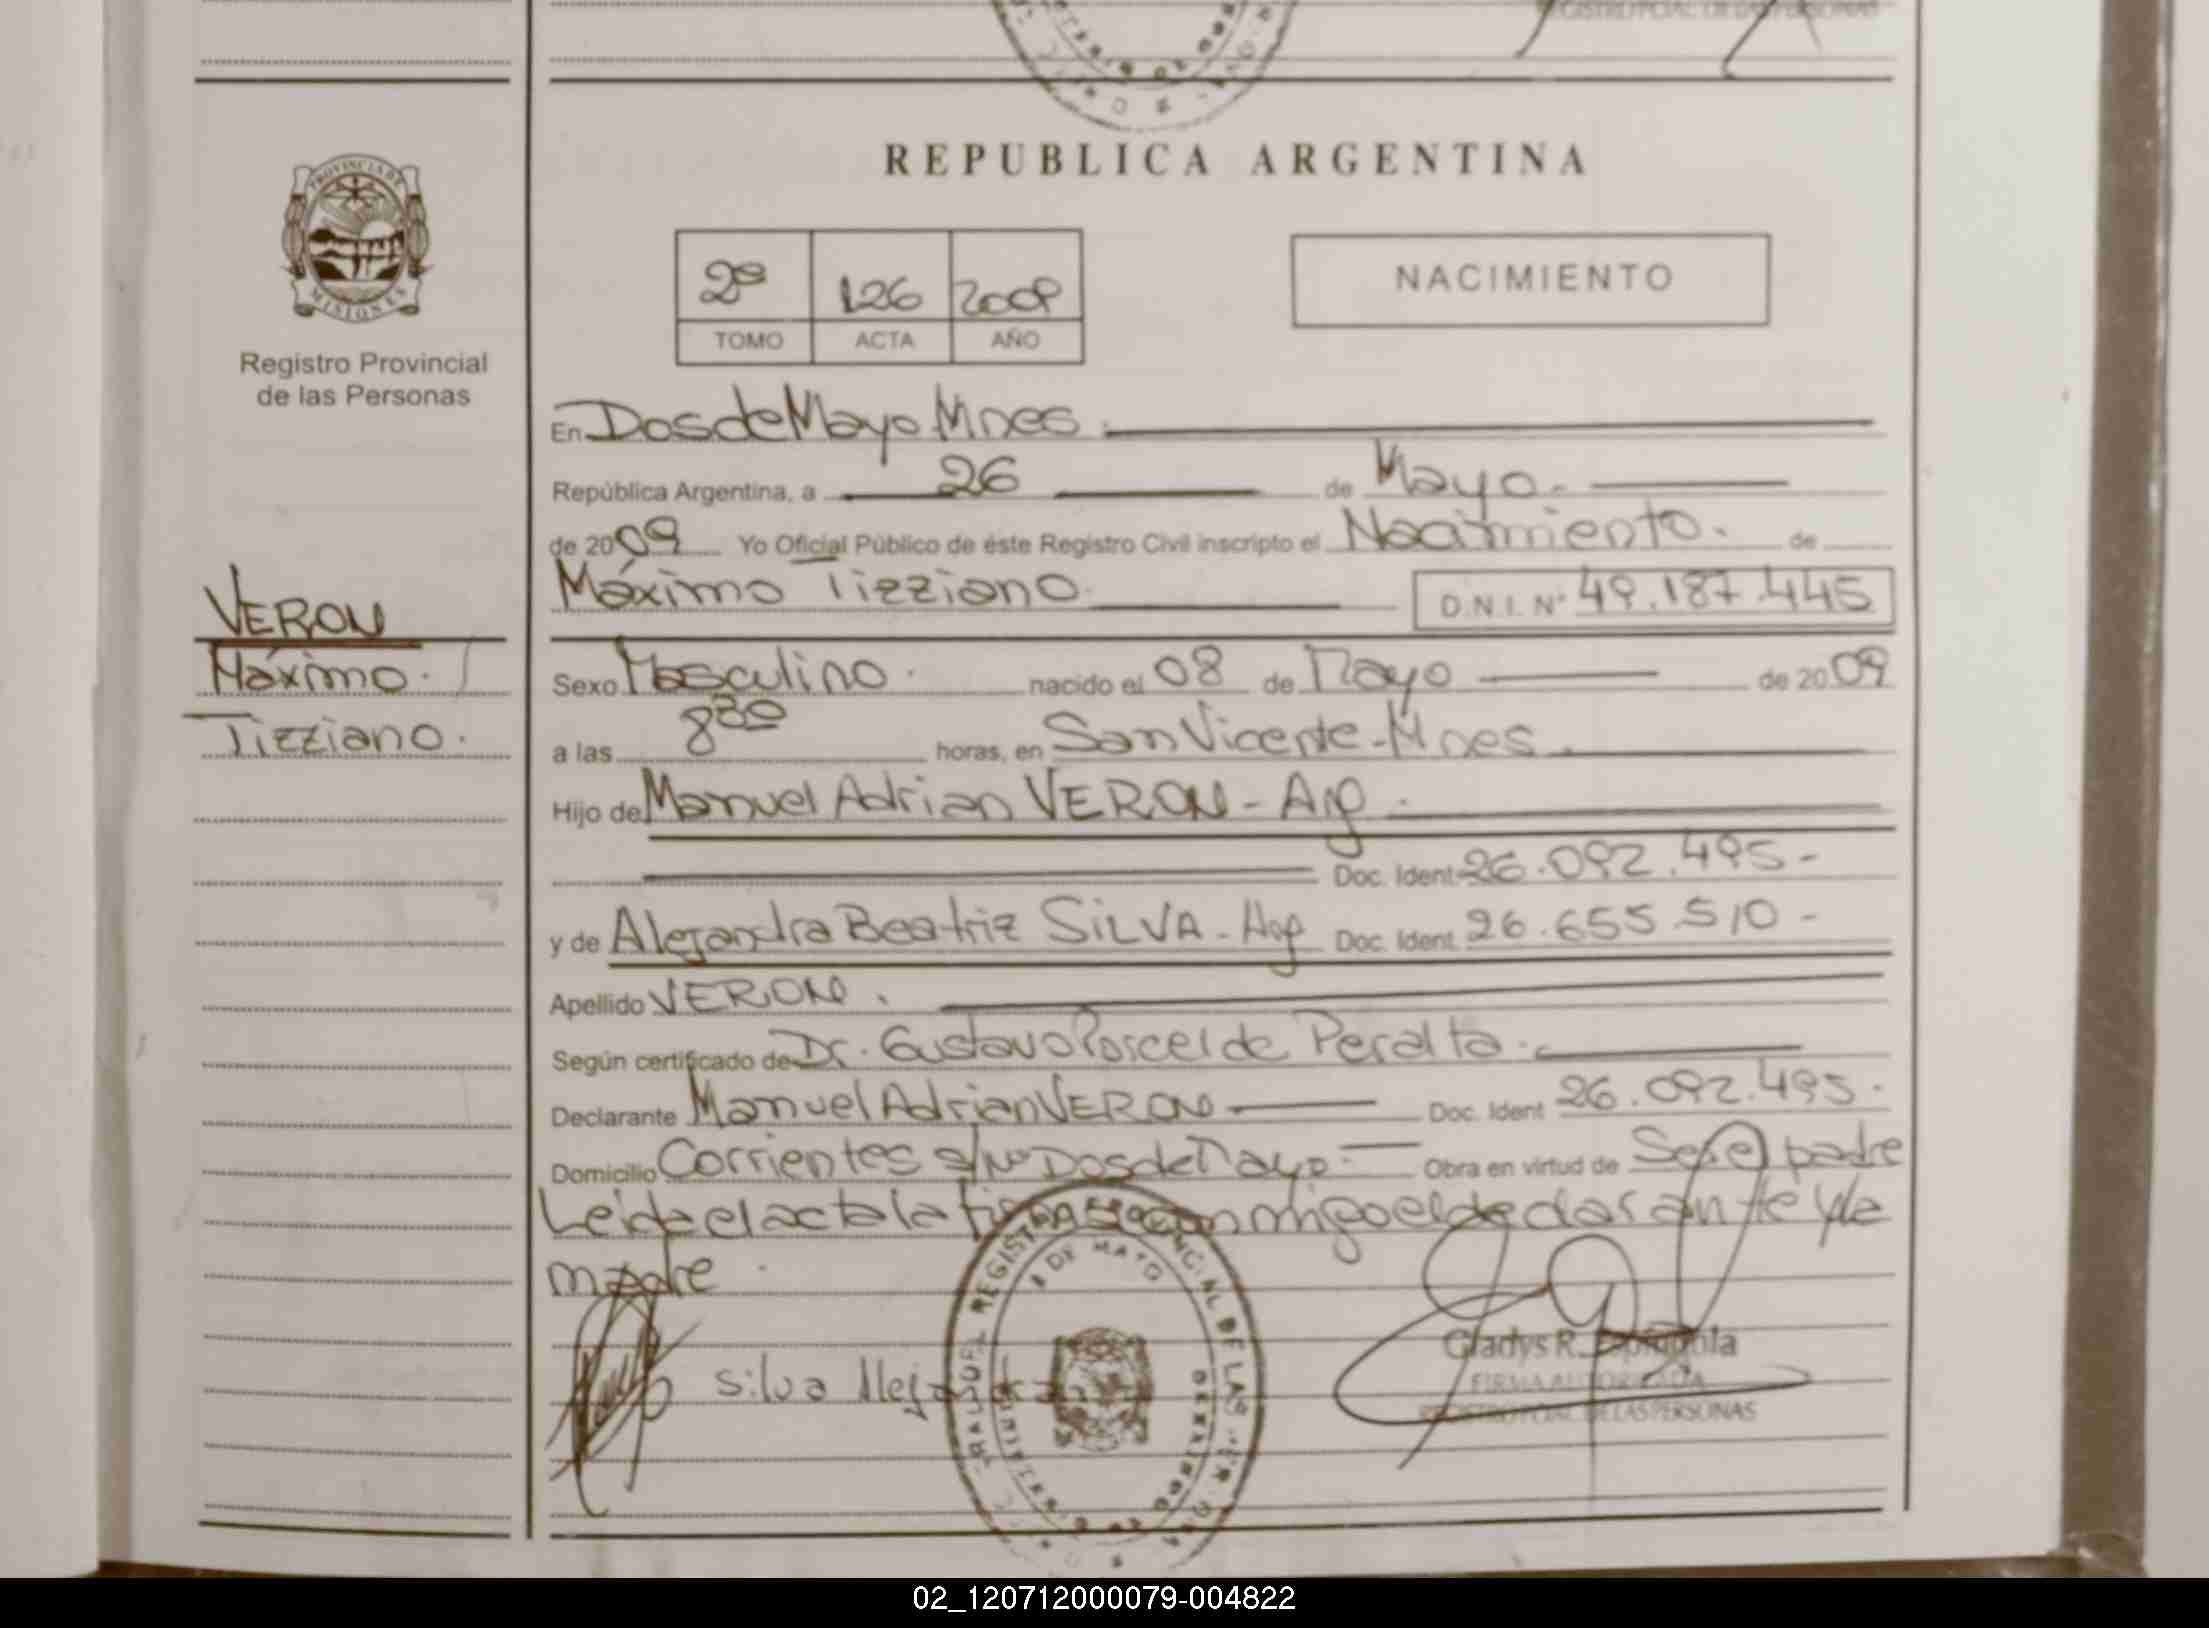 REGISTRO PCIAL. DE LAS PERSONAS
PROVINCIA DE
MISIONES
Registro Provincial
de las Personas
REPUBLICA ARGENTINA
2º 126 2009
TOMO ACTA AÑO
NACIMIENTO
En Dos de Mayo Mnes.
República Argentina, a 26 de Mayo.
de 2009 Yo Oficial Público de éste Registro Civil inscripto el Nacimiento. de
Máximo Tizziano. D.N.I. Nº 49.187.445
VERON
Máximo.
Tizziano.
Sexo Masculino. nacido el 08 de Mayo de 2009
a las 8 30 horas, en San Vicente-Mnes.
Hijo de Manuel Adrian VERON - Arg.
Doc. Ident. 26.092.495-
y de Alejandra Beatriz SILVA - Arg Doc. Ident. 26.655.510-
Apellido VERON.
Según certificado de Dr. Gustavo Porcel de Peralta.
Declarante Manuel Adrian VERON Doc. Ident 26.092.495.
Domicilio Corrientes s/Nº Dos de Mayo- Obra en virtud de Ser el padre
Leída el acta la firma conmigo el declarante y la
madre.
Silva Aleja
REGISTRO PROVINCIAL DE LAS PER
2 DE MAYO
Gladys R. Espíndola
FIRMA AUTORIZADA
REGISTRO PCIAL. DE LAS PERSONAS
02_120712000079-004822